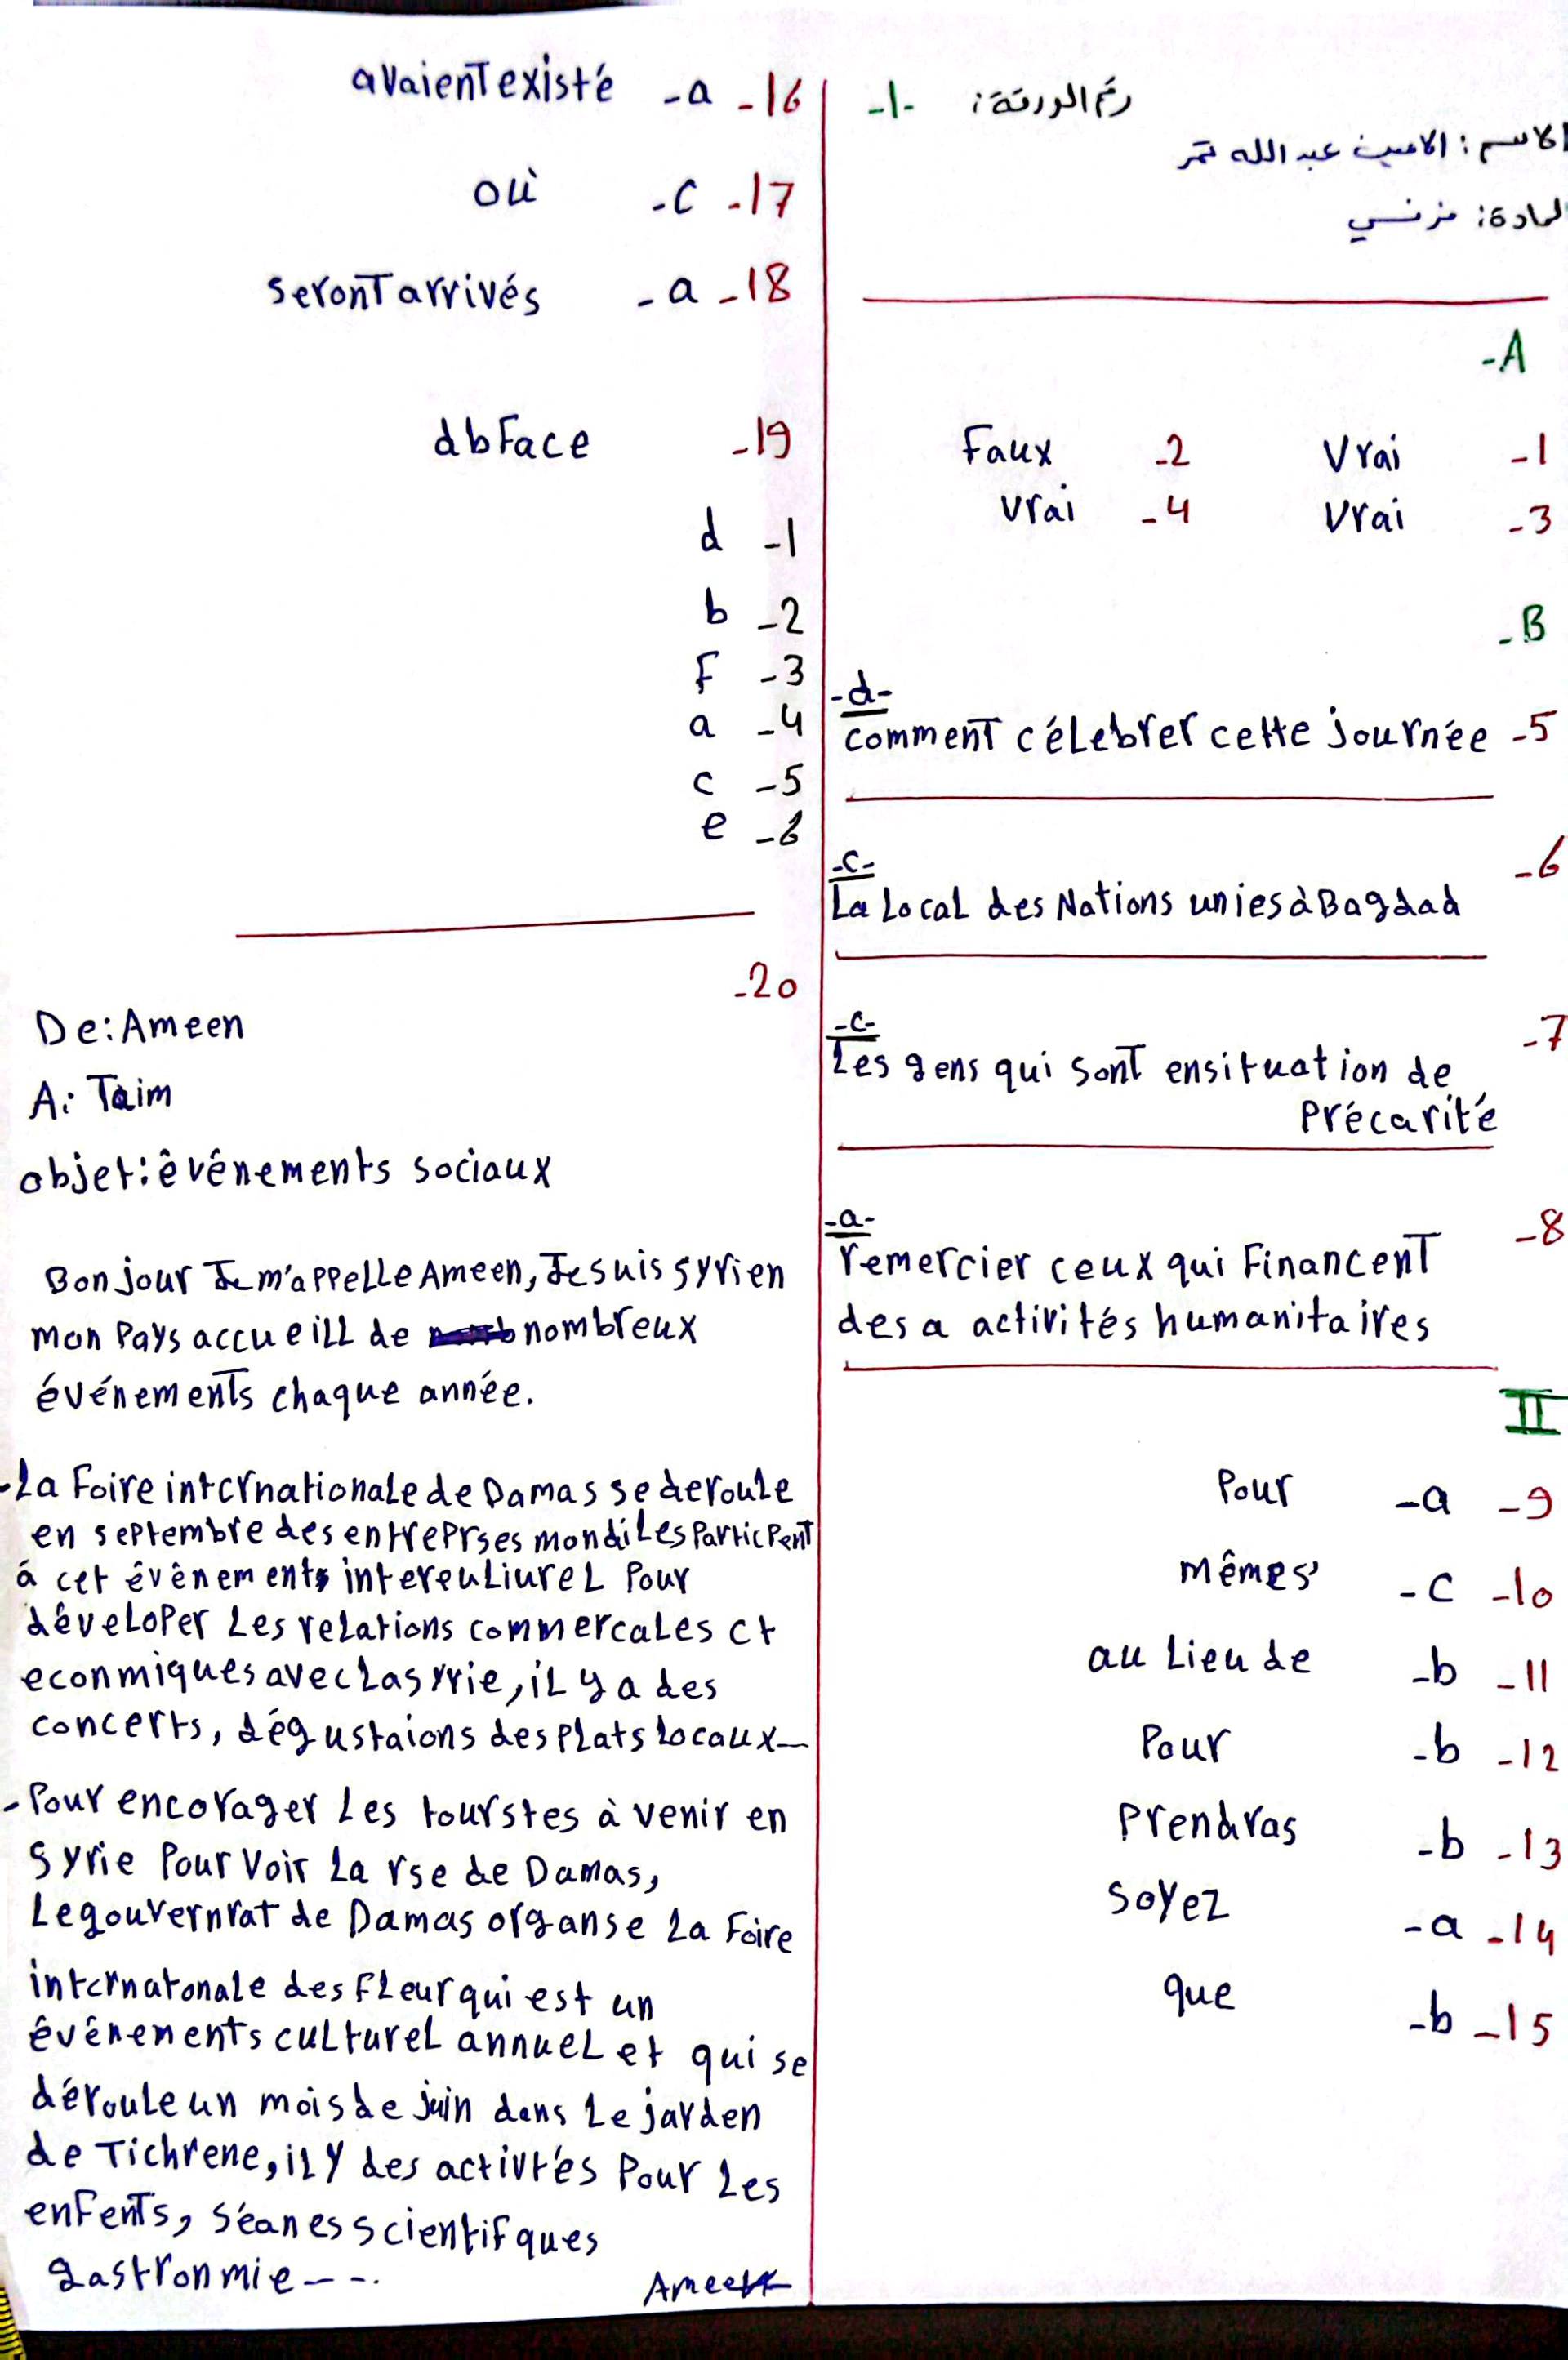 رقم الورقة: -1-
الاسم: الامين عبد الله تمر
المادة: فرنسي
-A
1- Vrai 2- Faux
3- Vrai 4- vrai
-B
5- -d-
comment céLebrer cette journée
6- -c-
La Local des Nations unies à Bagdad
7- -c-
Les gens qui sont ensituation de
Précarité
8- -a-
remercier ceux qui Financent
des a activités humanitaires
II
9- a- Pour
10- c- mêmes
11- b- au Lieu de
12- b- Pour
13- b- Prendras
14- a- soyez
15- b- que
16- a- avaient existé
17- c- où
18- a- seront arrivés
19- dbFace
1- d
2- b
3- F
4- a
5- c
6- e
20-
De: Ameen
A: Taim
objet: êvénements sociaux
Bonjour Je m'appelle Ameen, Je suis syrien
mon Pays accueill de nombreux
événements chaque année.
-La Foire internationale de Damas se deroule
en septembre des entreprses mondiles Particpent
à cet évènements intereuLiureL Pour
déveloper Les relations commercales et
econmiques avec La syrie, iL y a des
concerts, dégustaions des plats Locaux-
-Pour encorager Les tourstes à venir en
Syrie Pour Voir La rse de Damas,
Le gouvernrat de Damas organse La Foire
internatonale des FLeur qui est un
évènements culturel annuel et qui se
déroule un mois de juin dans Le jarden
de Tichrene, iL y des activtés Pour Les
enFents, séanes scientifques
gastronmie - - .
Ameen